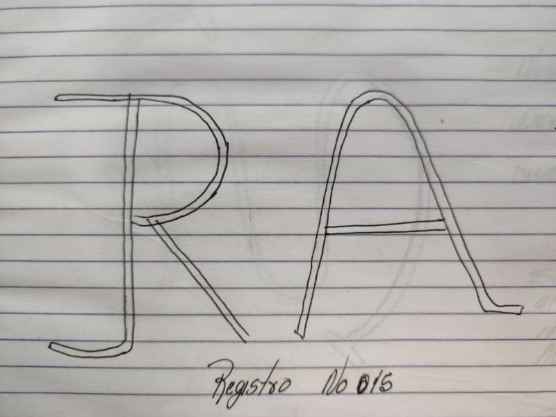 RA
Registro No 015